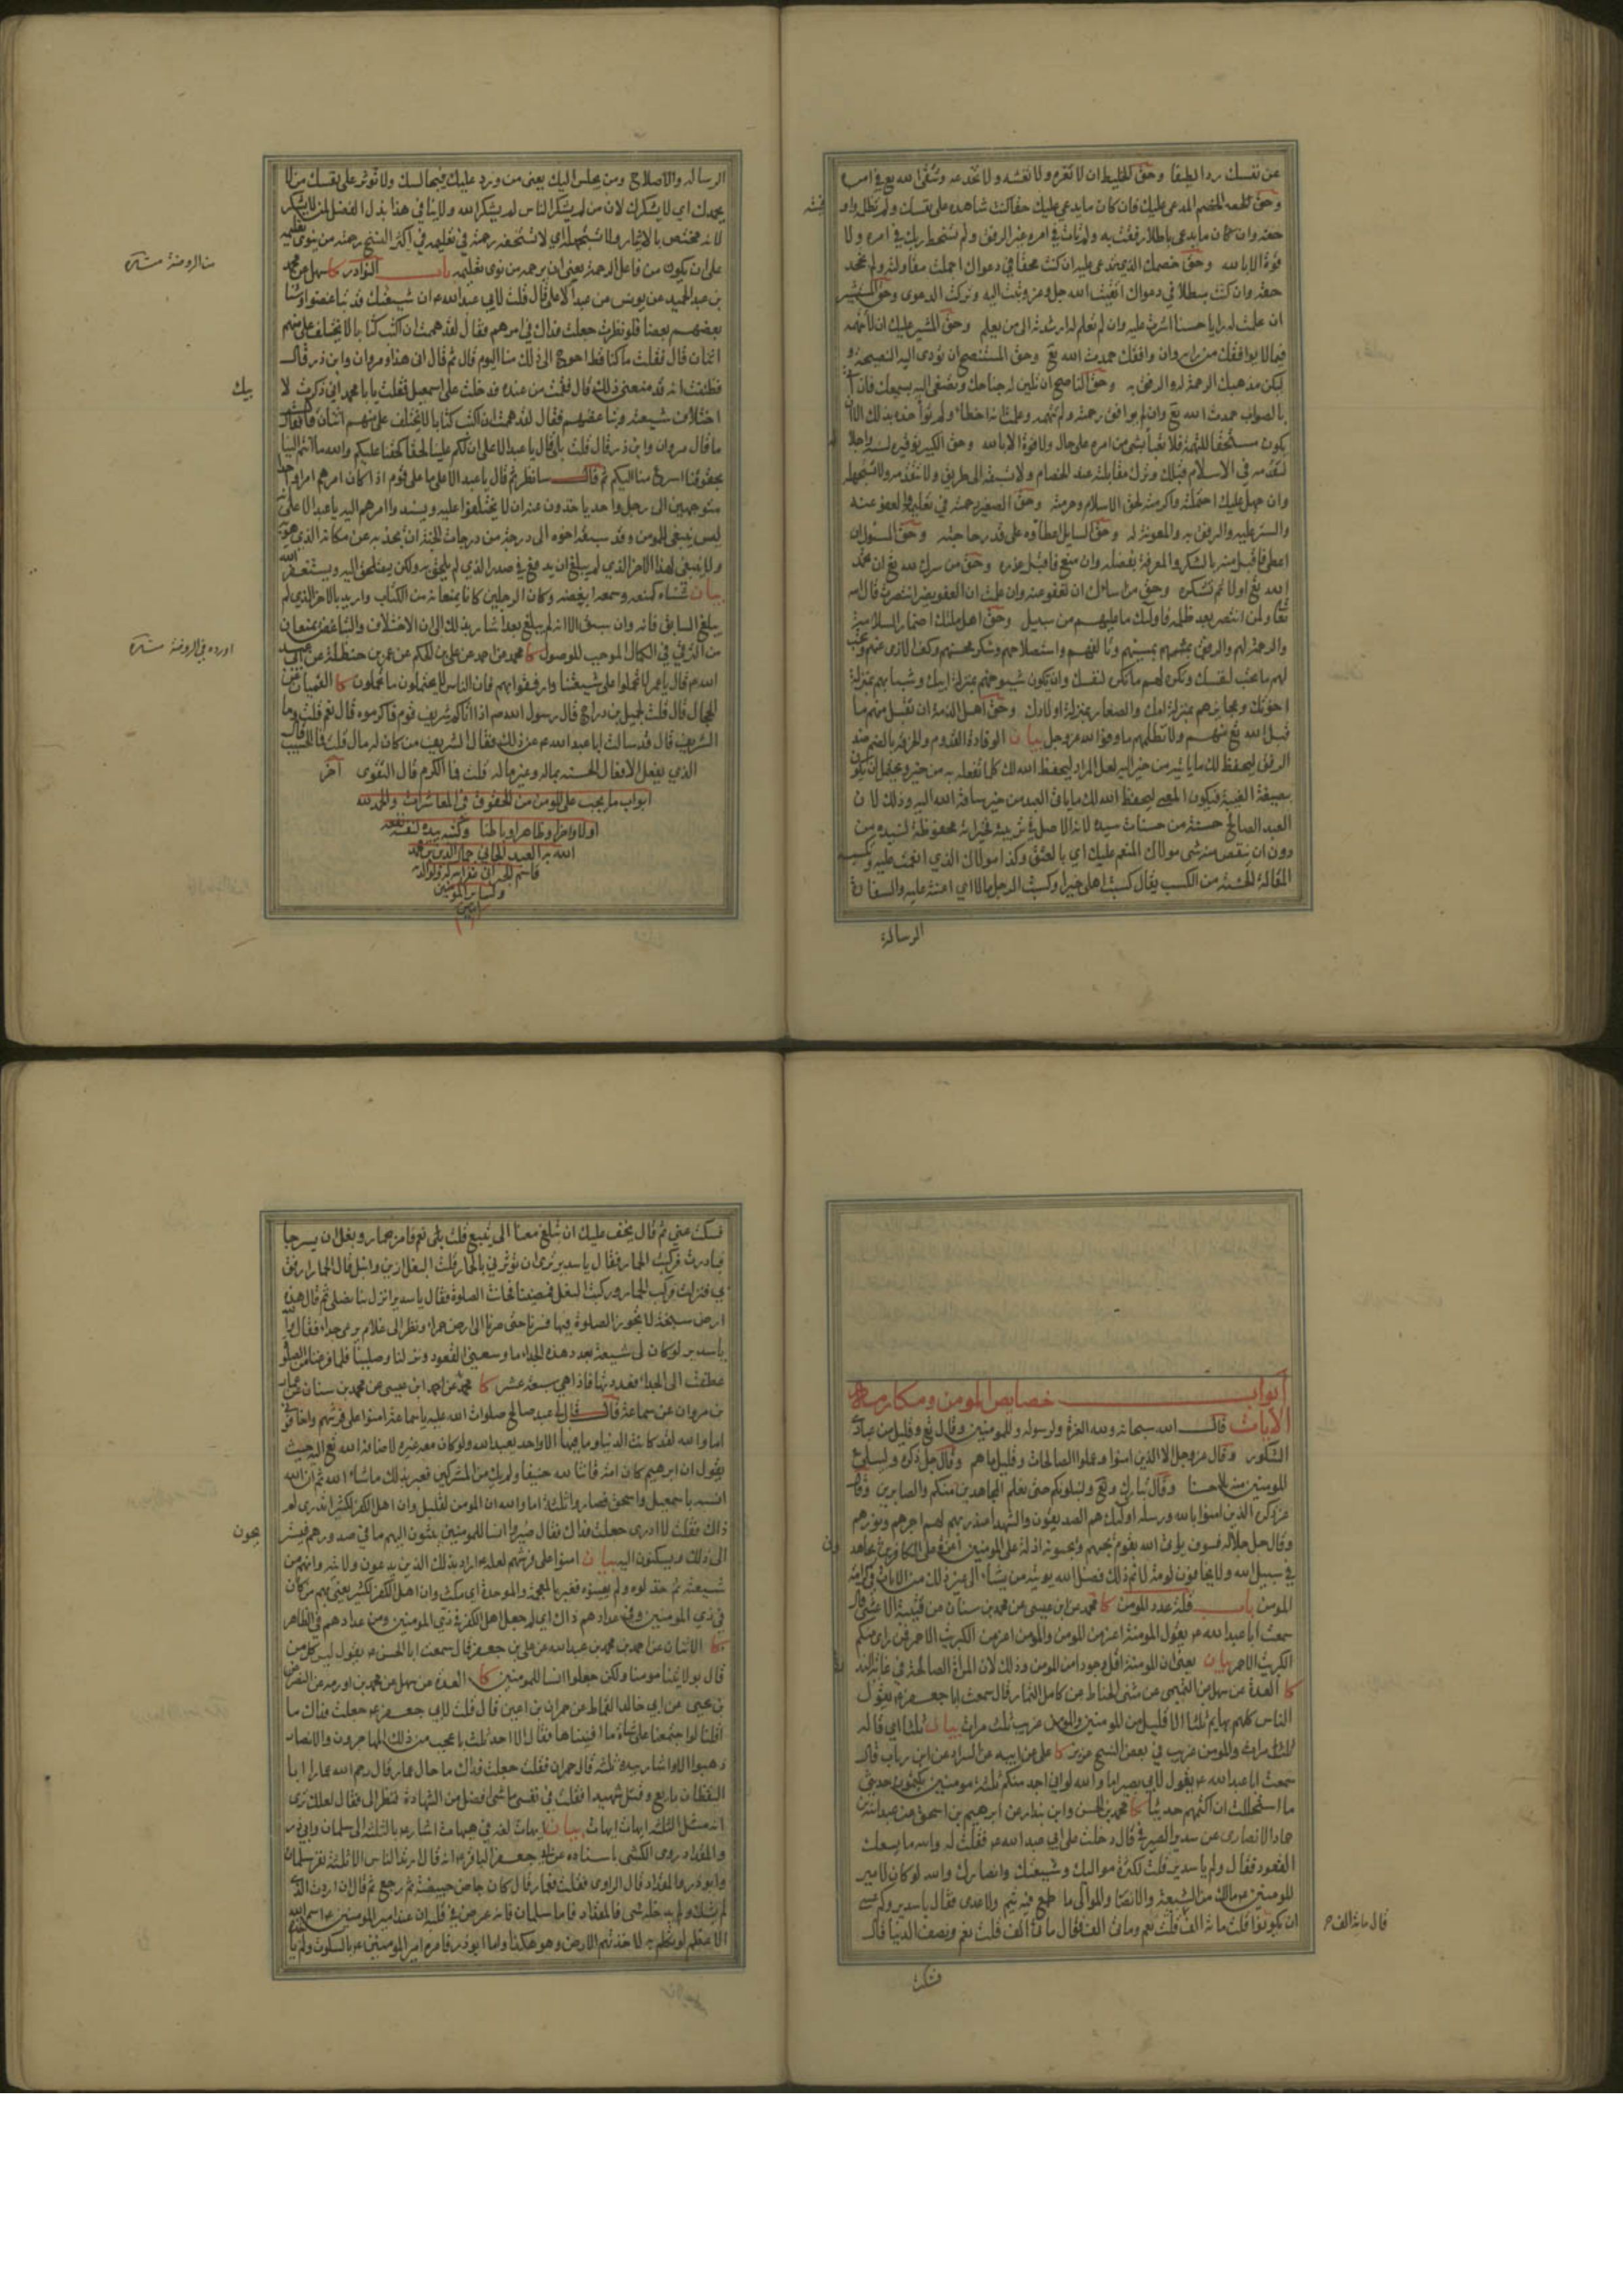 عن نفسك ردا لطيفا وحق الخليط ان لا تغره ولا تغشه ولا تخدعه وتتقى الله تع في امره
وحق الخصم المدعى عليك فان كان ما يدعى عليك حقا كنت شاهده على نفسك ولم تظلمه واوفيته
حقه وان كان ما يدعى باطلا رفقت به ولم تات في امره غير الرفق ولم تسخط ربك في امره ولا
قوة الا بالله وحق خصمك الذي تدعى عليه ان كنت محقا في دعواك اجملت مقاولته ولم تجحد
حقه وان كنت مبطلا في دعواك اتقيت الله جل وعز وتبت اليه وتركت الدعوى وحق المستشير
ان علمت له رايا حسنا اشرت عليه وان لم تعلم له ارشدته الى من يعلم وحق المشير عليك ان لا تتهمه
فيما لا يوافقك من رايه وان وافقك حمدت الله تع وحق المستنصح ان تؤدى اليه النصيحة و
ليكن مذهبك الرحمة له والرفق به وحق الناصح ان تلين له جناحك وتصغى اليه بسمعك فان اتى
بالصواب حمدت الله تع وان لم يوافق رحمته ولم تتهمه وعلمت انه اخطأ ولم تؤاخذه بذلك الا ان
يكون مستحقا للتهمة فلا تعبأ بشى من امره على حال ولا قوة الا بالله وحق الكبير توقيره لسنه واجلاله
لتقدمه في الاسلام قبلك وترك مقابلته عند الخصام ولا تسبقه الى طريق ولا تتقدمه ولا تستجهله
وان جهل عليك احتملته واكرمته لحق الاسلام وحرمته وحق الصغير رحمته في تعليمه والعفو عنه
والستر عليه والرفق به والمعونة له وحق السايل اعطاؤه على قدر حاجته وحق المسئول ان
اعطى فاقبل منه بالشكر والمعرفة بفضله وان منع فاقبل عذره وحق من سرك لله تع ان تحمد
الله تع اولا ثم تشكره وحق من ساءك ان تعفو عنه وان علمت ان العفو يضر انتصرت قال الله
تعا ولمن انتصر بعد ظلمه فاولئك ما عليهم من سبيل وحق اهل ملتك اضمار السلامة
والرحمة لهم والرفق بمسيئهم وتألفهم واستصلاحهم وشكر محسنهم وكف الاذى عنهم وتحب
لهم ما تحب لنفسك وتكره لهم ما تكره لنفسك وان يكون شيوخهم بمنزلة ابيك وشبابهم بمنزلة
اخوتك وعجايزهم بمنزلة امك والصغار بمنزلة اولادك وحق اهل الذمة ان تقبل منهم ما
قبل الله تع منهم ولا تظلمهم ما وفوا لله عز وجل بيان الوفادة القدوم والخرق بالضم ضد
الرفق ليحفظ لك ما ياتيه من خير اليه لعل المراد ليحفظ الله لك كلما تفعله به من خير ويحتمل ان يكون
بصيغة الغيبة فيكون المعنى ليحفظ الله لك ما ياتى العبد من خير ساقه الله اليه وذلك لان
العبد الصالح حسنة من حسنات سيده لانه الاصل في تربيته فخيراته محفوظة لسيده من
دون ان ينقص منه شى مولاك المنعم عليك اي بالعتق وكذا مولاك الذي انعمت عليه وتكسبه
المقالة الحسنة من الكسب يقال كسبت اهلى خيرا وكسبت الرجل مالا اي اعنته عليه والسفارة
الرسالة
الرسالة والاصلاح ومن يجلس اليك يعنى من ورد عليك فيجالسك ولا تؤثر على نفسك من لا
يحمدك اي لا يشكرك لان من لم يشكر الناس لم يشكر الله ولا ينافى هذا بذل الفضل لمن لا يشكر
لانه مختص بالايثار ولا تستجهله اي لا تستخفه رحمته في تعليمه في اكثر النسخ رحمته من نوى تعليمه
على ان يكون من فاعل الرحمة يعنى ان يرحمه من نوى تعليمه باب النوادر كا سهل عن محمد
من الروضة
بن عبد الحميد عن يونس عن عبد الاعلى قال قلت لابى عبد الله ع ان شيعتك قد تباغضوا وشنأ
بعضهم بعضا فلو نظرت جعلت فداك في امرهم فقال لقد هممت ان اكتب كتابا لا يختلف على منهم
اثنان قال فقلت ما كنا قط احوج الى ذلك منا اليوم قال ثم قال انى هذا ومروان وابن ذر قال
فظننت انه قد منعنى ذلك قال فقمت من عنده فدخلت على اسمعيل فقلت يا با محمد انى ذكرت لابيك
اختلاف شيعته وتباغضهم فقال لقد هممت ان اكتب كتابا لا يختلف على منهم اثنان قال فقال
ما قال مروان وابن ذر قال قلت بلى قال يا عبد الاعلى ان لكم علينا لحقا كحقنا عليكم والله ما انتم الينا
بحقوقنا اسرع منا اليكم ثم قال سانظر ثم قال يا عبد الاعلى ما على قوم اذا كان امرهم امرا واحدا
متوجهين الى رجل واحد ياخذون عنه ان لا يختلفوا عليه ويسندوا امرهم اليه يا عبد الاعلى
ليس ينبغى للمومن وقد سبقه اخوه الى درجة من درجات الجنة ان يجذبه عن مكانه الذي هو به
ولا ينبغى لهذا الاخر الذي لم يبلغ ان يدفع في صدر الذي لم يلحق به ولكن يستلحق اليه ويستغفر الله
بيان شناه كمنعه وسمعه ابغضه وكان الرجلين كانا يمنعانه من الكتاب واريد بالاخر الذي لم
يبلغ السابق فانه وان سبق الا انه لم يبلغ بعد اشار بذلك الى ان الاختلاف والتباغض يمنعان
من الترقي في الكمال الموجب للوصول كا محمد عن احمد عن على بن الحكم عن عمر بن حنظلة عن ابى عبد
اورده في الروضة
الله ع قال يا عمر لا تحملوا على شيعتنا وارفقوا بهم فان الناس لا يحتملون ما تحملون كا القميان عن
الحجال قال قلت لجميل بن دراج قال رسول الله ص اذا اتاكم شريف قوم فاكرموه قال نعم قلت وما
الشريف قال قد سالت ابا عبد الله ع عن ذلك فقال الشريف من كان له مال قلت فالحسيب قال
الذي يفعل الافعال الحسنة بماله وغير ماله قلت فما الكرم قال التقوى آخر
ابواب ما يجب على المومن من الحقوق في المعاشرات والحمد لله
اولا واخرا وظاهرا وباطنا وكتبه بيده لنفسه نفعه
الله به العبد الجانى جمال الدين بن محمد
قاسم غفر الله له ولوالديه
ولساير المومنين
امين
ابواب خصايص المومن ومكارمه
الايات قال الله سبحانه ولله العزة ولرسوله وللمومنين وقال تع وقليل من عبادى
الشكور وقال عز وجل الا الذين امنوا وعملوا الصالحات وقليل ما هم وقال جل ذكره وليبلى
المومنين منه بلاء حسنا وقال تبارك وتع ولنبلونكم حتى نعلم المجاهدين منكم والصابرين وقال
عز ذكره الذين امنوا بالله ورسله اولئك هم الصديقون والشهدا عند ربهم لهم اجرهم ونورهم
وقال جل جلاله فسوف ياتى الله بقوم يحبهم ويحبونه اذلة على المومنين اعزة على الكافرين يجاهدون
في سبيل الله ولا يخافون لومة لائم ذلك فضل الله يوتيه من يشاء الى غير ذلك من الايات في كرامة
المومن باب قلة عدد المومن كا محمد عن ابن عيسى عن محمد بن سنان عن قتيبة الاعشى قال
سمعت ابا عبد الله ع يقول المومنة اعز من المومن والمومن اعز من الكبريت الاحمر فمن راى منكم
الكبريت الاحمر بيان يعنى ان المومنة اقل وجودا من المومن وذلك لان المراة الصالحة في غاية الندرة
كا العدة عن سهل عن التميمى عن مثنى الحناط عن كامل التمار قال سمعت ابا جعفر ع يقول
الناس كلهم بهايم ثلثا الا قليل من المومنين والمومن غريب ثلث مرات بيان ثلثا اي قاله
ثلث مرات والمومن غريب في بعض النسخ عزيز كا على عن ابيه عن السراد عن ابن رياب قال
سمعت ابا عبد الله ع يقول لابى بصير اما والله لو انى اجد منكم ثلثة مومنين يكتمون حديثى
ما استحللت ان اكتمهم حديثا كا محمد بن الحسن وابن بندار عن ابرهيم بن اسحق عن عبد الله بن
حماد الانصارى عن سدير الصيرفي قال دخلت على ابى عبد الله ع فقلت له والله ما يسعك
القعود فقال ولم يا سدير قلت لكثرة مواليك وشيعتك وانصارك والله لو كان لامير
المومنين ع مالك من الشيعة والانصار والموالى ما طمع فيه تيم ولا عدى فقال يا سدير وكم عسى
ان يكونوا قلت مائة الف قال مائة الف قلت نعم ومائتى الف فقال مائتى الف قلت نعم ونصف الدنيا قال
قال مائة الف
فسكت
فسكت عنى ثم قال يخف عليك ان تبلغ معنا الى ينبع قلت بلى نعم فامر بحمار وبغل ان يسرجا
فبادرت فركبت الحمار فقال يا سدير ترى ان تؤثرنى بالحمار قلت البغل ازين وانبل قال الحمار ارفق
بى فنزلت فركب الحمار وركبت البغل فمضينا فحانت الصلوة فقال يا سدير انزل بنا نصلى ثم قال هذه
ارض سبخة لا تجوز الصلوة فيها فسرنا حتى صرنا الى ارض حمراء ونظر الى غلام يرعى جداء فقال والله
يا سدير لو كان لى شيعة بعدد هذه الجداء ما وسعنى القعود ونزلنا وصلينا فلما فرغنا من الصلوة
عطفت الى الجداء فعددتها فاذا هى سبعة عشر كا محمد عن احمد ابن عيسى عن محمد بن سنان عن عمار
بن مروان عن سماعة قال قال لى عبد صالح صلوات الله عليه يا سماعة امنوا على فرشهم واخافونى
اما والله لقد كانت الدنيا وما فيها الا واحد يعبد الله ولو كان معه غيره لاضافه الله تع اليه حيث
يقول ان ابرهيم كان امة قانتا لله حنيفا ولم يك من المشركين فعبر بذلك ما شاء الله ثم ان الله
انسه باسمعيل واسحق فصاروا ثلثة اما والله ان المومن لقليل وان اهل الكفر لكثير اتدرى لم
ذاك فقلت لا ادرى جعلت فداك فقال صيروا انسا للمومنين يبثون اليهم ما في صدورهم فيستريحون
الى ذلك ويسكنون اليه بيان امنوا على فرشهم لعله ع اراد بذلك الذين يدعون ولايته وانهم من
شيعته ثم خذلوه ولم يعينوه فغبر بالمعجمة والموحدة اي مكث وان اهل الكفر لكثير يعنى بهم من كان
في زي المومنين وفي عدادهم ذاك اي لم جعل اهل الكفر في زي المومنين ومن عدادهم في الظاهر
كا الاثنان عن احمد بن محمد بن عبد الله عن على بن جعفر قال سمعت ابا الحسن ع يقول ليس كل من
قال بولايتنا مومنا ولكن جعلوا انسا للمومنين كا العدة عن سهل عن محمد بن اورمة عن النضر عن
بن يحيى عن ابى خالد القماط عن حمران بن اعين قال قلت لابى جعفر ع جعلت فداك ما
اقلنا لو اجتمعنا على شاة ما افنيناها فقال الا احدثك باعجب من ذلك المهاجرون والانصار
ذهبوا الا واشار بيده ثلثة قال حمران فقلت جعلت فداك ما حال عمار قال رحم الله عمارا ابا
اليقظان بايع وقتل شهيدا فقلت في نفسى ما شئ افضل من الشهادة فنظر الى فقال لعلك ترى
انه مثل الثلثة ايهات ايهات بيان ايهات لغة في هيهات اشار ع بالثلثة الى سلمان وابى ذر
والمقداد روى الكشى باسناده عن ابى جعفر الباقر ع انه قال ارتد الناس الا ثلثة نفر سلمان
وابو ذر والمقداد قال الراوى فقلت فعمار قال كان جاض جيضة ثم رجع ثم قال ان اردت الذي
لم يشك ولم يدخله شى فالمقداد فاما سلمان فانه عرض في قلبه ان عند امير المومنين ع اسم الله
الاعظم لو تكلم به لاخذتهم الارض وهو هكذا واما ابو ذر فامره امير المومنين ع بالسكوت ولم يا